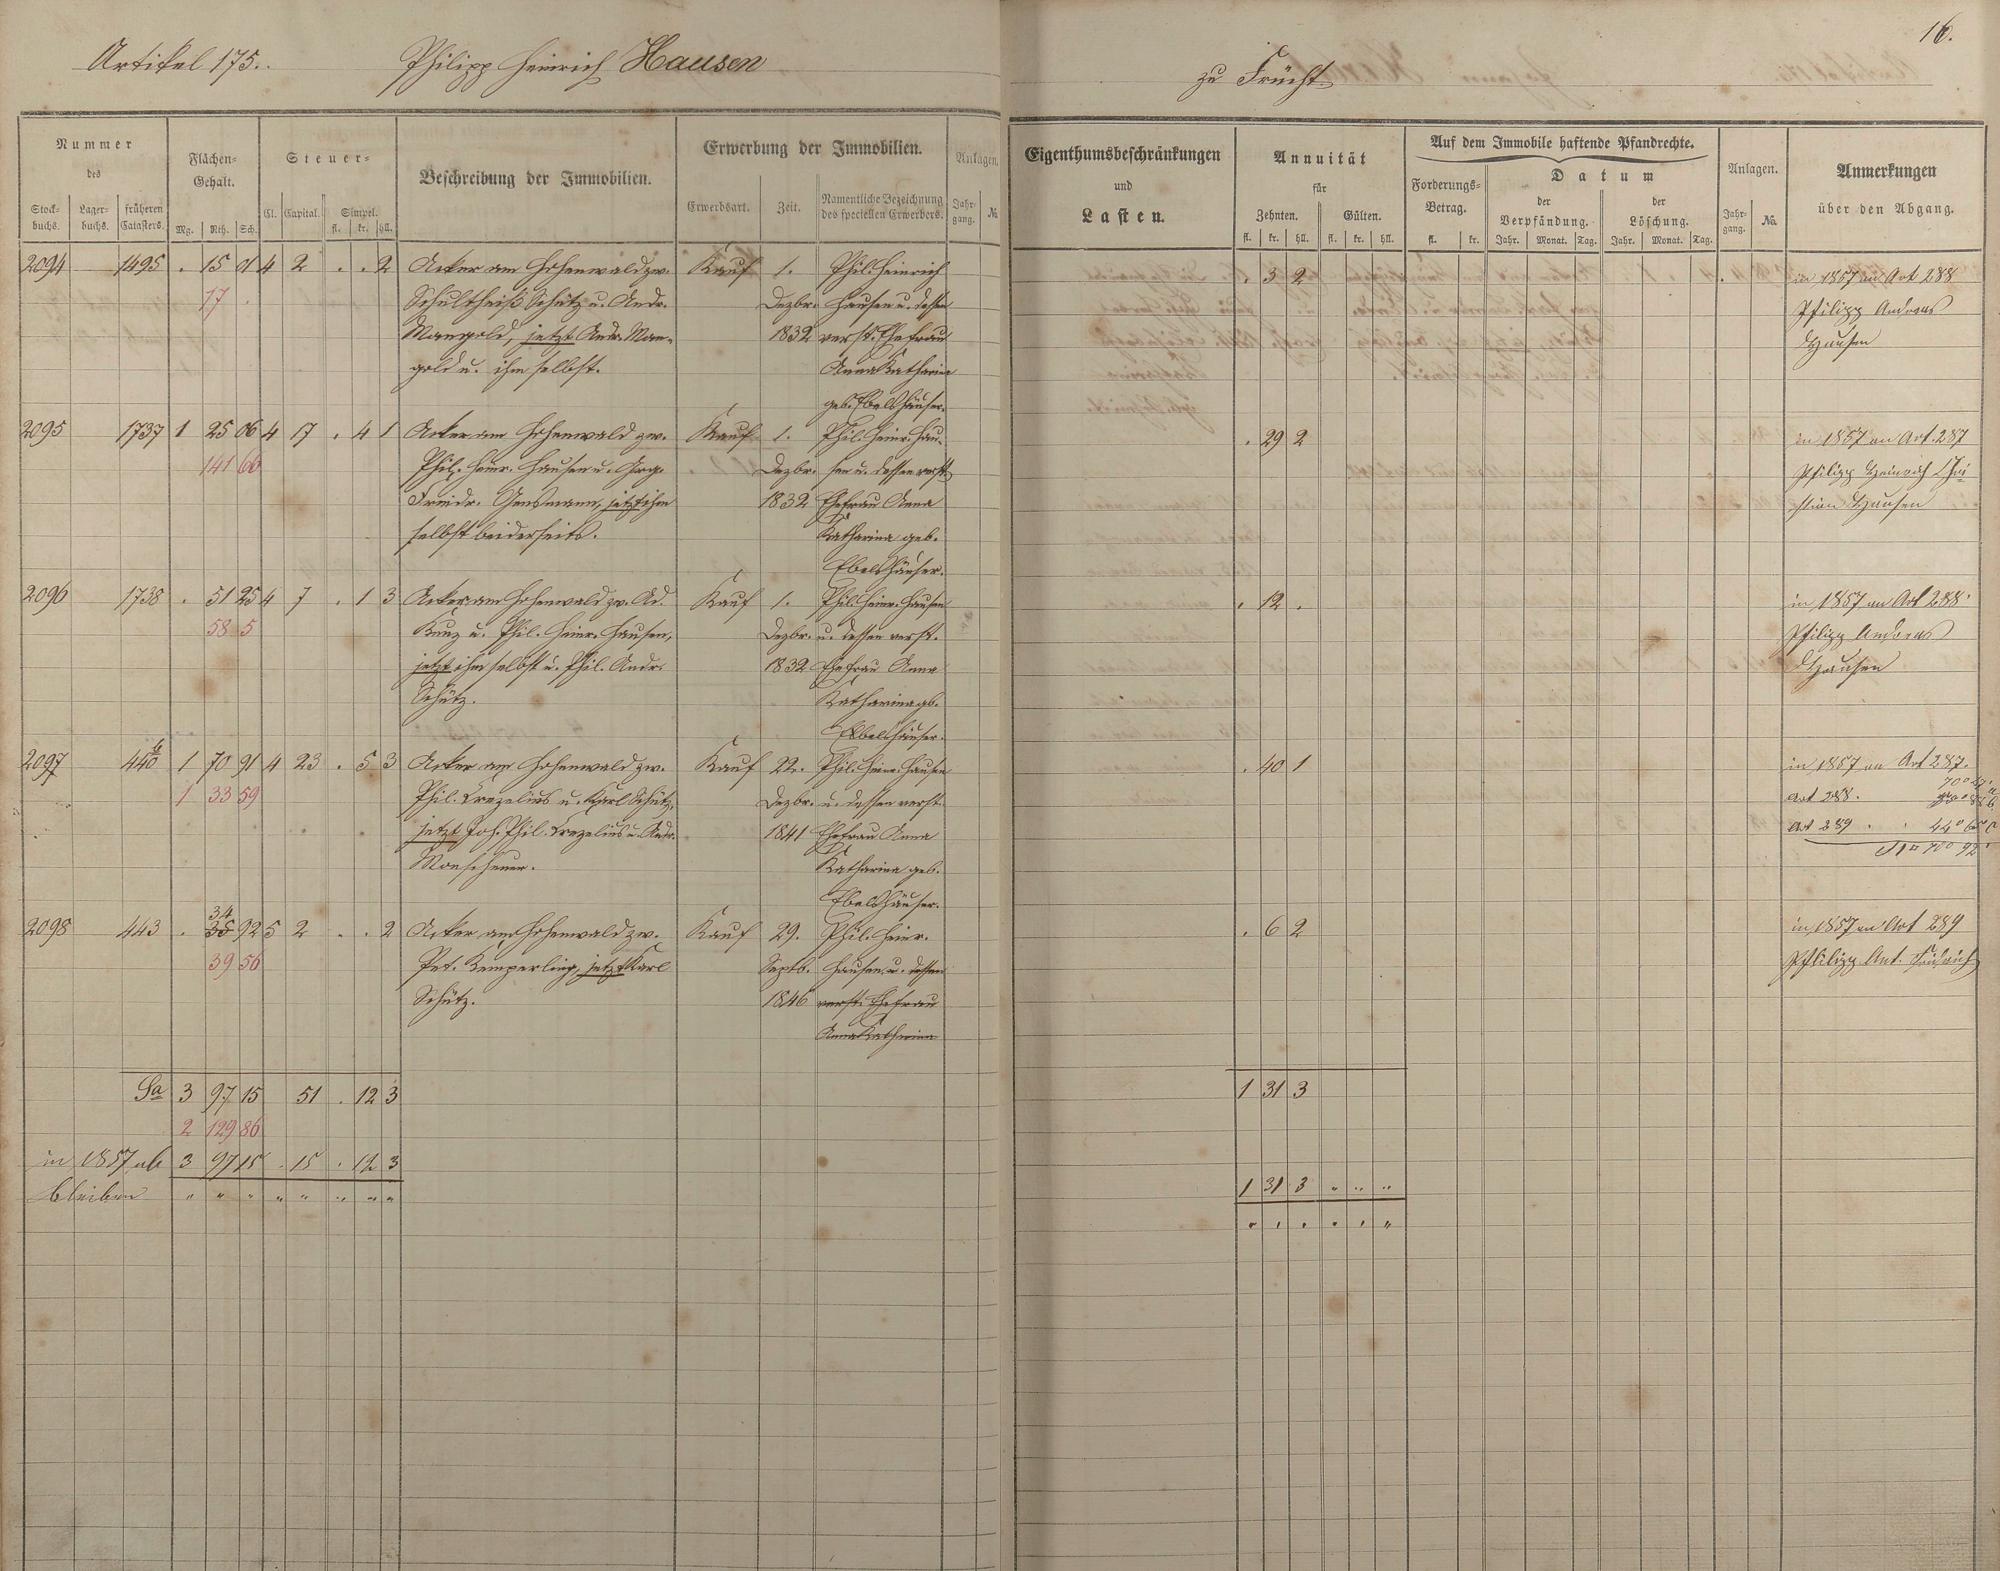 Artikel 175.
Philipp Heinrich Hausen
zu Frücht
16.
Nummer
des
Stock-
buchs.
Lager-
buchs.
früheren
Catasters.
Flächen-
Gehalt.
Mg. Rth. Sch.
Steuer-
Cl. Capital. Simpel.
fl. kr. hll.
Beschreibung der Immobilien.
Erwerbung der Immobilien.
Erwerbsart. Zeit. Namentliche Bezeichnung
des speciellen Erwerbers.
Anlagen.
Jahr-
gang.
No.
Eigenthumsbeschränkungen
und
Lasten.
Annuität
für
Zehnten. Gülten.
fl. kr. hll. fl. kr. hll.
Auf dem Immobile haftende Pfandrechte.
Forderungs-
Betrag.
fl. kr.
Datum
der
Verpfändung.
Jahr. Monat. Tag.
der
Löschung.
Jahr. Monat. Tag.
Anlagen.
Jahr-
gang.
No.
Anmerkungen
über den Abgang.
2094 1495 . 15 01 4 2 . . 2 Acker am Hohenwald zw. Kauf 1. Phil. Heinrich
17 . Schultheiß Schütz u. Andr. Dezbr. Hausen u. dessen
Mangold, jetzt Andr. Man- 1832 verst. Ehefrau
gold u. ihm selbst. Anna Katharina
geb. Ebelshäuser.
. 3 2
in 1857 an Art 288
Philipp Andreas
Hausen
2095 1737 1 25 06 4 17 . 4 1 Acker am Hohenwald zw. Kauf 1. Phil. Heinr. Hau-
141 66 Phil. Heinr. Hausen u. Grg. Dezbr. sen u. dessen verst.
Friedr. Gensmann, jetzt ihm 1832 Ehefrau Anna
selbst beiderseits. Katharina geb.
Ebelshäuser.
. 29 2
in 1857 an Art. 287
Philipp Heinrich Chri-
stian Hausen
2096 1738 . 51 25 4 7 . 1 3 Acker am Hohenwald zw. Ad. Kauf 1. Phil. Heinr. Hausen
58 5 Kunz u. Phil. Heinr. Hausen, Dezbr. u. dessen verst.
jetzt ihm selbst u. Phil. Andr. 1832 Ehefrau Anna
Schütz. Katharina gb.
Ebelshäuser.
. 12 .
in 1857 an Art 288
Philipp Andreas
Hausen
2097 440 1 70 91 4 23 . 5 3 Acker am Hohenwald zw. Kauf 22. Phil. Heinr. Hausen
1 33 59 Phil. Crezelius u. Karl Schütz, Dezbr. u. dessen verst.
jetzt Joh. Phil. Crezelius u. Andr. 1841 Ehefrau Anna
Monscheuer. Katharina geb.
Ebelshäuser.
. 40 1
in 1857 an Art 287.
Art 288.
Art 289 . .
2098 443 . 34 35 92 5 2 . . 2 Acker am Hohenwald zw. Kauf 29. Phil. Heinr.
39 56 Pet. Kemperling, jetzt Karl Septb. Hausen u. dessen
Schütz. 1846 verst. Ehefrau
Anna Katharina
. 6 2
in 1857 an Art 289
Philipp Ant. Friedrich
Sa 3 97 15 51 . 12 3
1 31 3
2 129 86
in 1857 ab 3 97 15 . 15 . 12 3
1 31 3 " " "
bleiben " " " " " " " "
" " " " " "